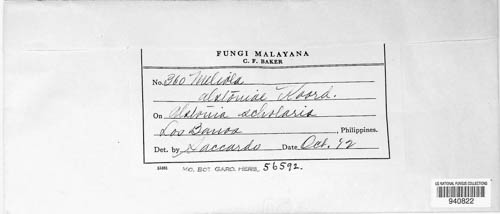 FUNGI MALAYANA
C. F. BAKER
No. 360 Meliola
alstoniae Koord.
On Alstonia scholaris
Los Banos, Philippines.
Det. by Saccardo Date Oct. 12
MO. BOT. GARD. HERB. 56592.
US NATIONAL FUNGUS COLLECTIONS
940822